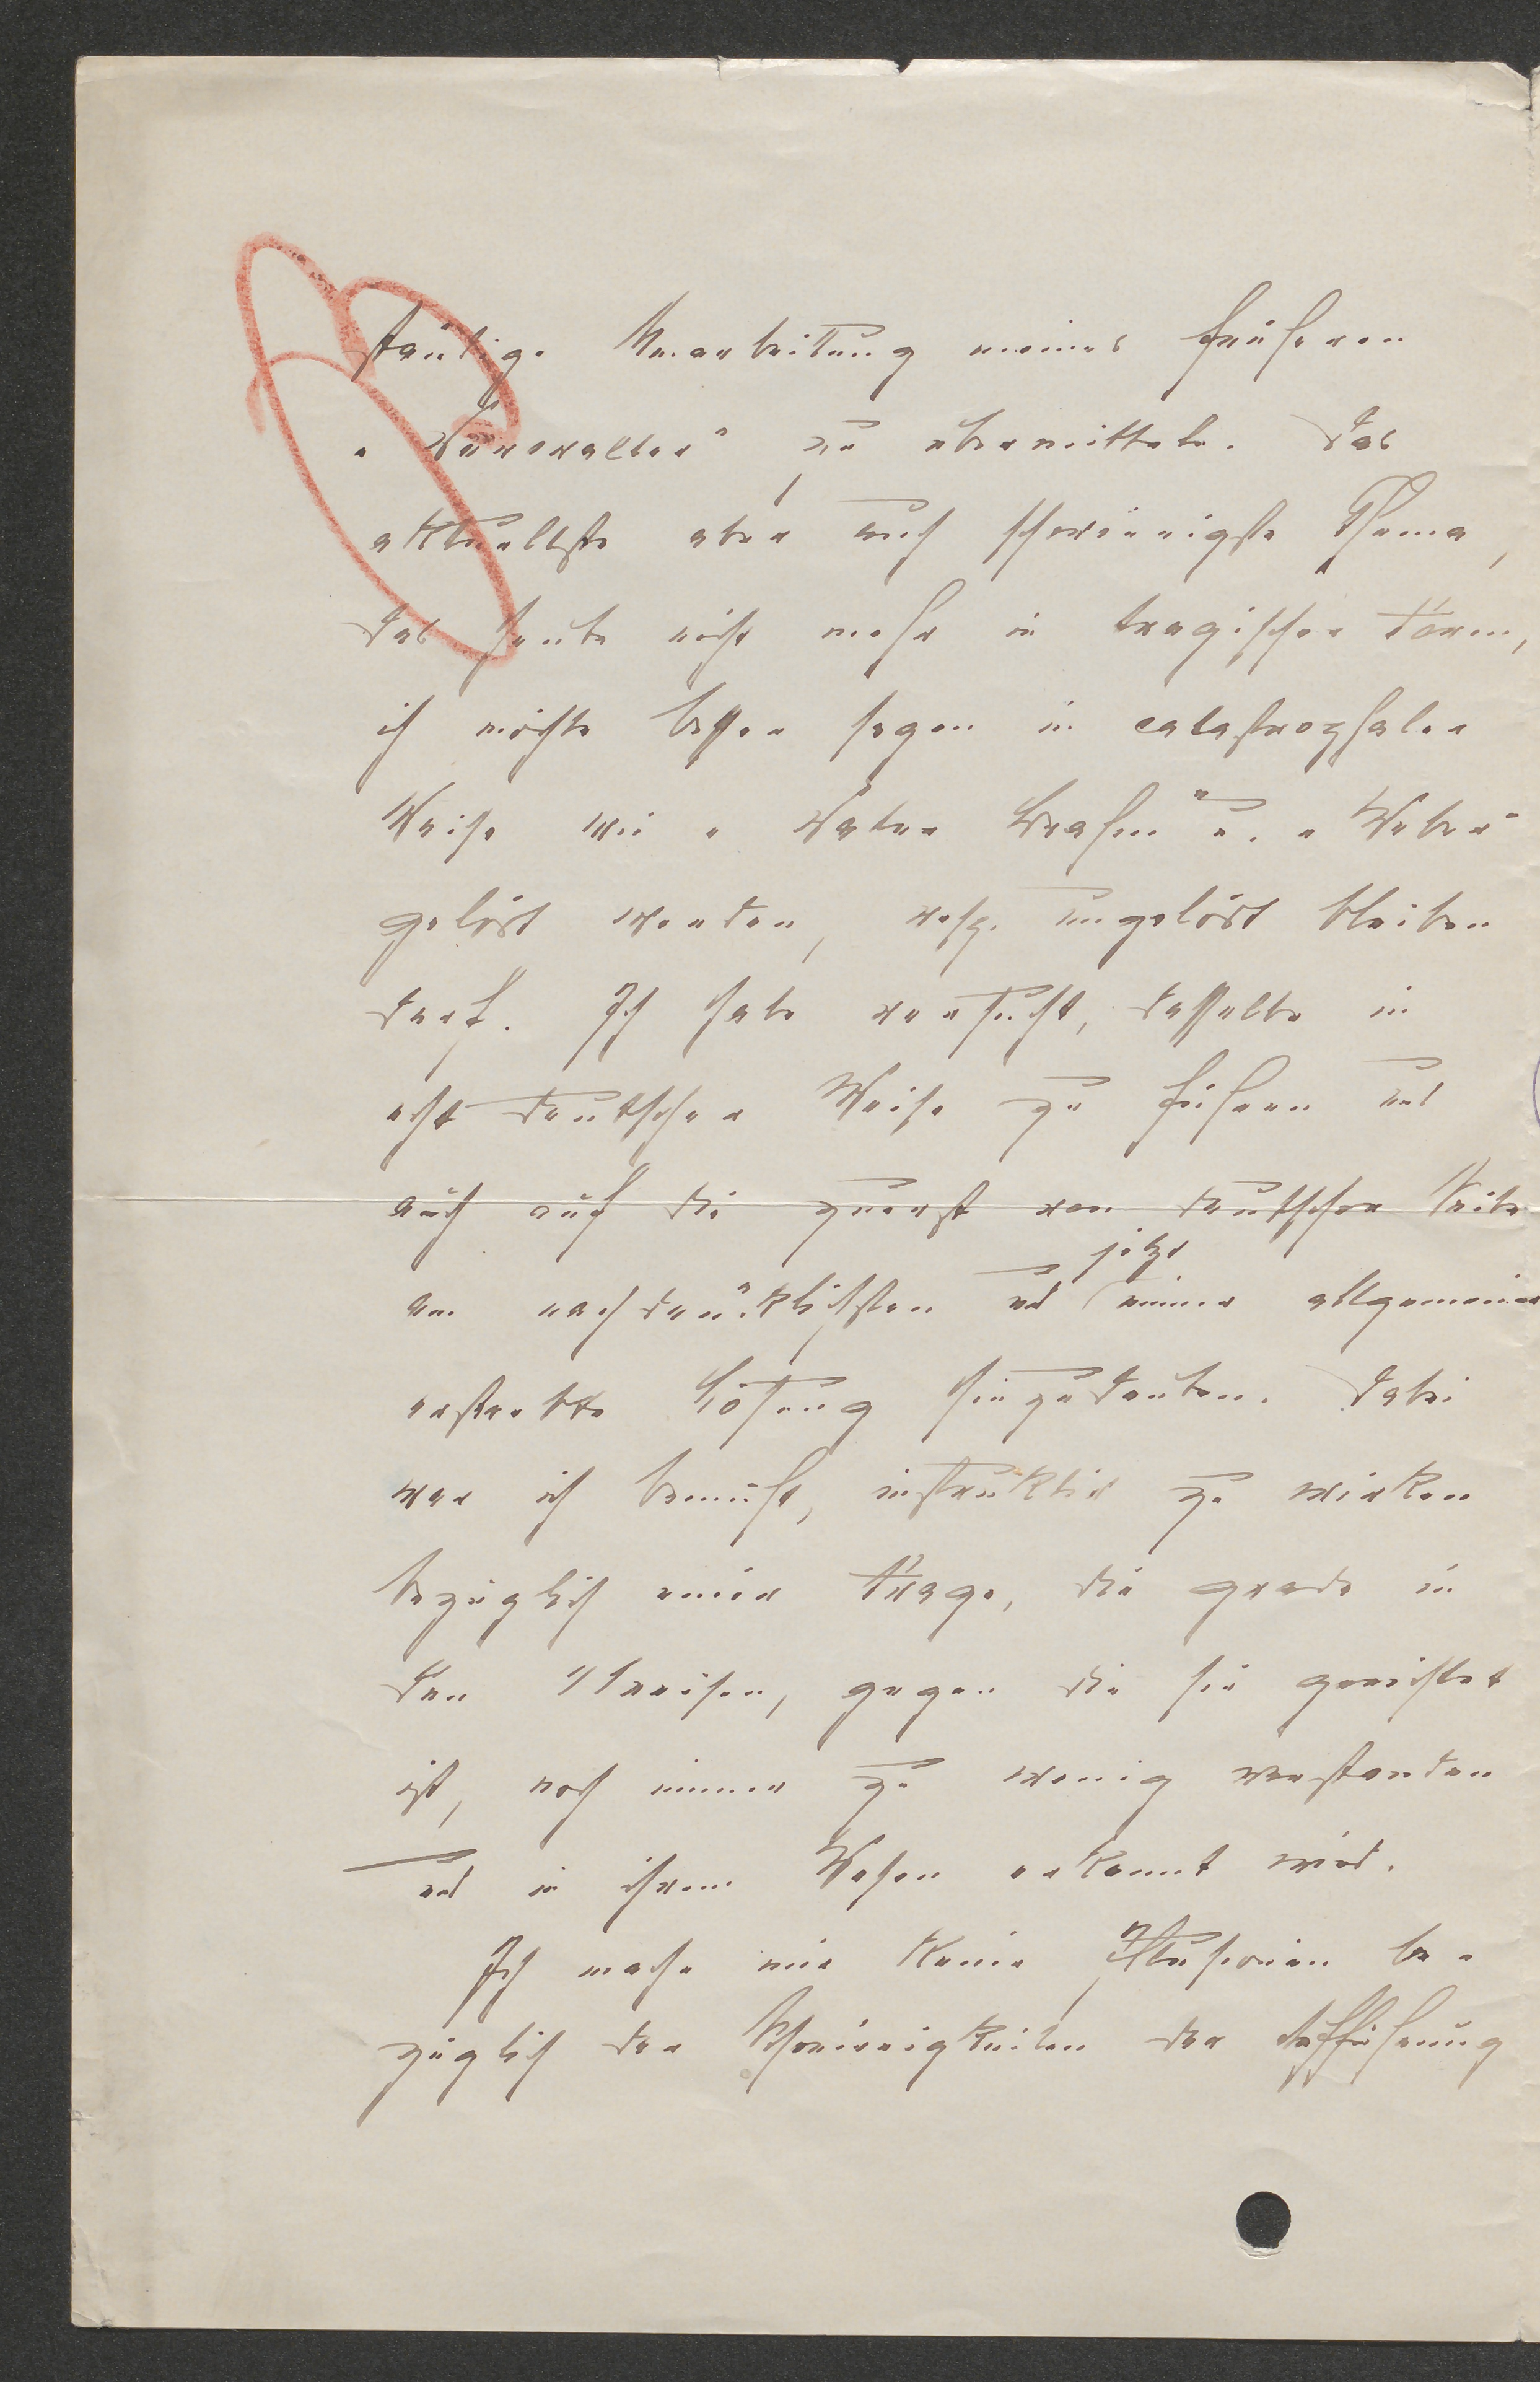 ständige Umarbeitung meines früheren
„ " zu übermitteln. Das
aktuellste aber auch schwierigste Thema,
das heute nicht mehr in tragischer Form,
ich möchte besser sagen in catastrophaler
Weise wie „Vater Brahm" u. „Weber"
gelöst werden, resp. ungelöst bleiben
darf. Ich habe versucht, dasselbe in
echt deutscher Weise zu führen und
auch auf die zuerst von deutscher Seite
am nachdrücklichsten und jetzt immer allgemeiner
erstrebte Lösung hinzudeuten. Dabei
war ich bemüht, instruktiv zu wirken
bezüglich einer Frage, die grade in
den Kreisen, gegen die sie gerichtet
ist, noch immer zu wenig verstanden
und in ihrem Wesen erkannt wird.
Ich mache mir keine Illusionen be-
züglich der Schwierigkeiten der Aufführung